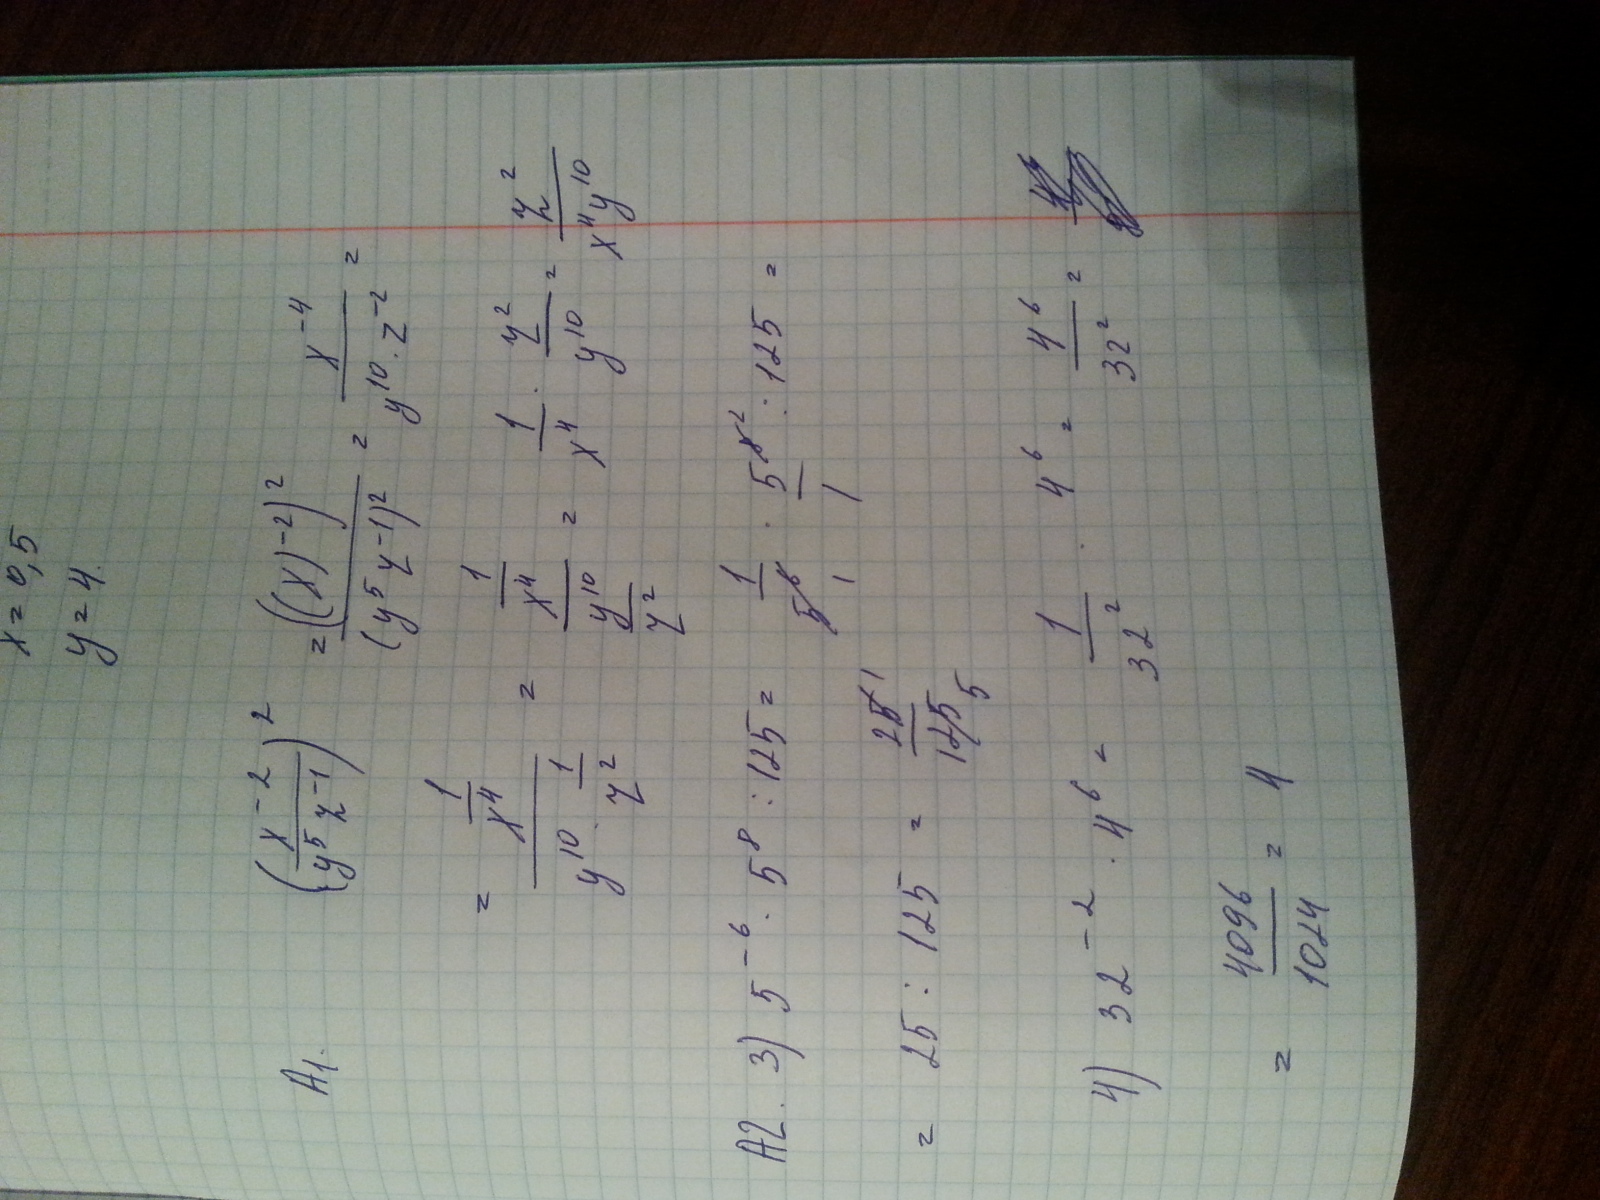 x = 0,5
y = 4.
A1. (x^-2 / y^5 z^-1)^2 = ((x)^-2)^2 / (y^5 z^-1)^2 = x^-4 / y^10 · z^-2 =
= 1/x^4 / y^10 · 1/z^2 = 1/x^4 / y^10/z^2 = 1/x^4 · z^2/y^10 = z^2 / x^4 y^10
A2. 3) 5^-6 · 5^8 : 125 = 1/5^6 1 · 5^8 2 / 1 : 125 =
= 25 : 125 = 25 1 / 125 5
4) 32^-2 · 4^6 = 1/32^2 · 4^6 = 4^6/32^2 =
= 4096/1024 = 4